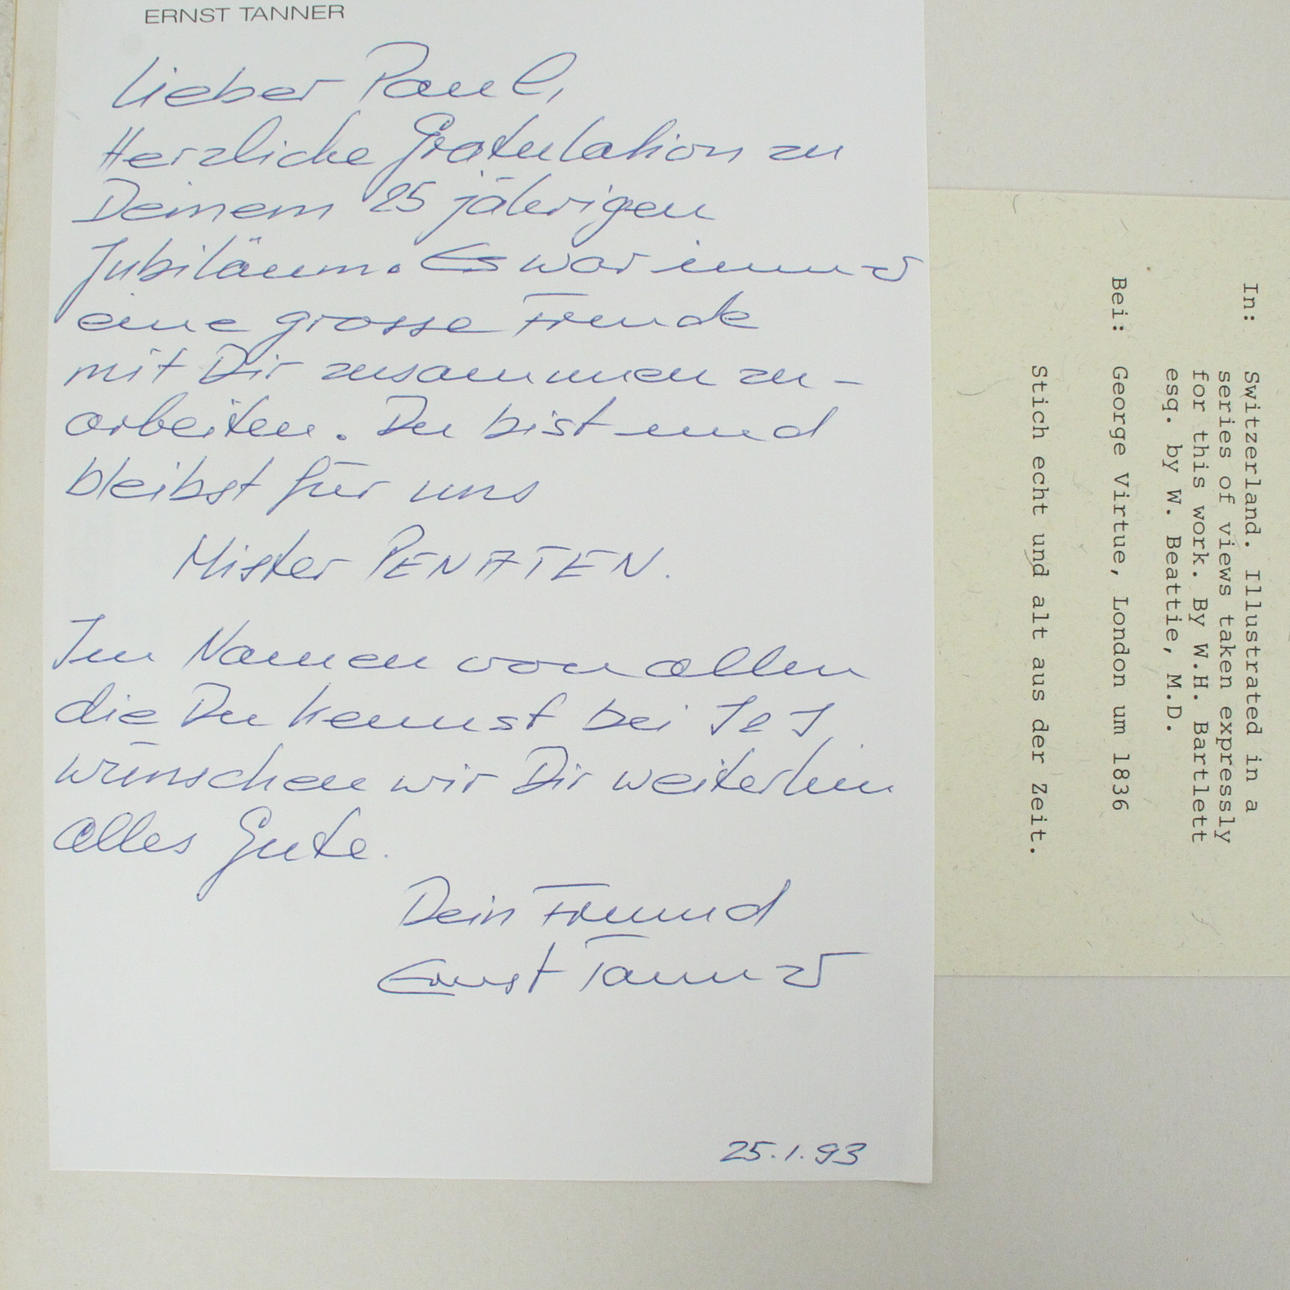 ERNST TANNER
Lieber Paul,
Herzliche Gratulation zu
Deinem 25 jährigen
Jubiläum. Es war immer
eine grosse Freude
mit Dir zusammen zu-
arbeiten. Du bist und
bleibst für uns
Mister PENATEN.
Im Namen von allen
die Du kennst bei J&J
wünschen wir Dir weiterhin
alles Gute.
Dein Freund
Ernst Tanner
25.1.93
In: Switzerland. Illustrated in a
series of views taken expressly
for this work. By W.H. Bartlett
esq. by W. Beattie, M.D.
Bei: George Virtue, London um 1836
Stich echt und alt aus der Zeit.